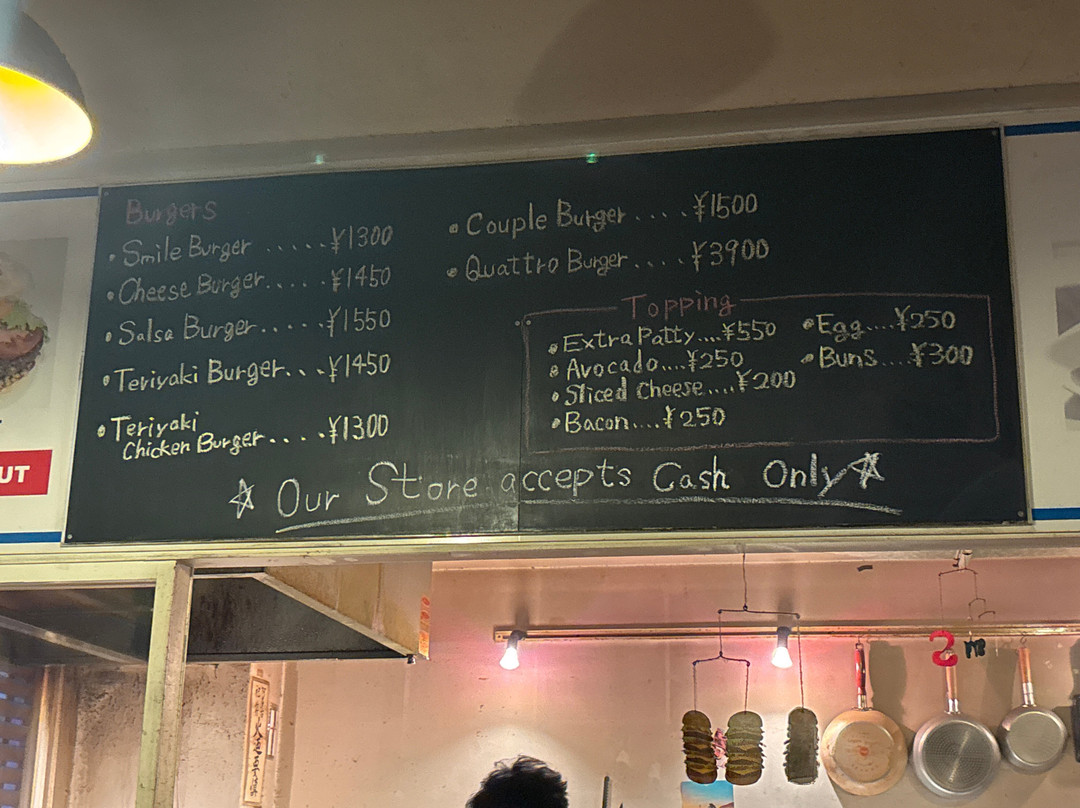 Burgers
• Smile Burger ......¥1300
• Cheese Burger.....¥1450
• Salsa Burger.....¥1550
• Teriyaki Burger...¥1450
• Teriyaki
Chicken Burger....¥1300
• Couple Burger ....¥1500
• Quattro Burger....¥3900
Topping
• Extra Patty....¥550
• Avocado....¥250
• Sliced Cheese....¥200
• Bacon....¥250
• Egg....¥250
• Buns....¥300
☆ Our Store accepts Cash Only ☆
UT